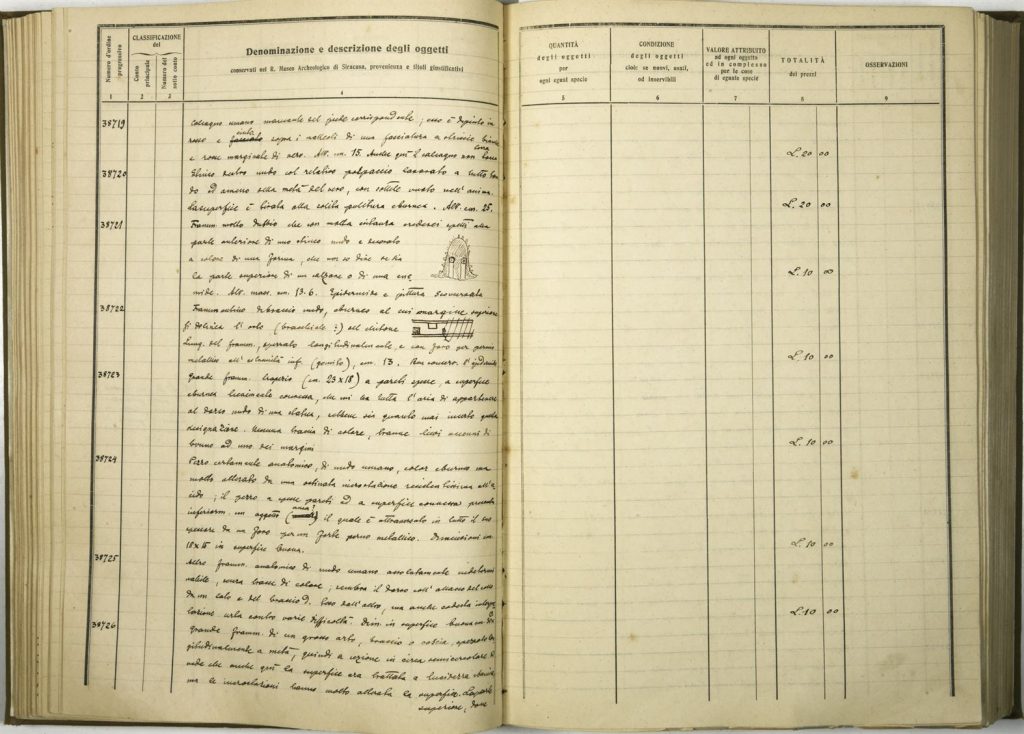 Numero d'ordine progressivo
CLASSIFICAZIONE del
Conto principale
Numero del sotto conto
Denominazione e descrizione degli oggetti
conservati nel R. Museo Archeologico di Siracusa, provenienza e titoli giustificativi
1 2 3 4
38719 calcagno umano mancante del piede corrispondente; esso è dipinto in
rosso e cinto sopra i malleoli di una fasciatura a striscie bianche
e rosse marginate di nero. Alt. cm. 15. Anche qui il calcagno non
38720 Stinco destro nudo col relativo polpaccio lavorato a tutto
do ad almeno della metà del vero, con sottile vuoto nell'anima.
La superficie è tirata alla solita politura eburnea. Alt. cm. 25.
38721 Framm. molto dubbio che con molta crederei spetti alla
parte anteriore di uno stinco nudo e decorato
a colore di una forma, che non so dire se sia
la parte superiore di un calzare o di una cne
mide. Alt. mass. cm. 13.6. Epidermide e pittura
38722 Framm. di braccio nudo, eburneo al cui margine superiore
si delinea l'orlo (bracciale?) del chitone
Lung. del framm. spezzato longitudinalmente, e con foro per perno
metallico all'estremità inf. (gomito), cm. 13. l'epidermide
38723 Grande framm. (cm. 23 x 18) a pareti spesse, a superficie
eburnea lievemente convessa, che mi ha tutta l'aria di appartenere
al dorso nudo di una statua, sebbene sia quanto mai incerta questa
designazione. Nessuna traccia di colore, tranne lievi accenni di
bruno ad uno dei margini
38724 Pezzo certamente anatomico, di nudo umano, color eburneo ma
molto alterato da una ostinata incrostazione resistentissima all'a-
cido; il pezzo a spesse pareti ed a superficie convessa presenta
inferiorm. un oggetto il quale è attraversato in tutto il suo
spessore da un foro per un forte perno metallico. Dimensioni cm.
in superficie buona.
38725 Altro framm. anatomico di nudo umano assolutamente indetermi
nabile, senza tracce di colore; sembra il dorso coll'attacco del collo
da un lato e del braccio D. dall'altro, ma anche codesta
urta contro varie difficoltà. Dim. in superficie buona cm.
38726 Grande framm. di un grosso arto, braccio o coscia, spezzato lon
gitudinalmente a metà, quindi a sezione in circa semicircolare. Si
vede che anche qui la superficie era trattata a lucidezza
ma le incrostazioni hanno molto alterata la superficie. La parte
superiore, dove
QUANTITÀ degli oggetti per ogni egual specie
CONDIZIONE degli oggetti cioè: se nuovi, usati, od inservibili
VALORE ATTRIBUITO ad ogni oggetto od in complesso per le cose di eguale specie
TOTALITÀ dei prezzi
OSSERVAZIONI
5 6 7 8 9
L. 20 00
L. 20 00
L. 10 00
L. 10 00
L. 10 00
L. 10 00
L. 10 00